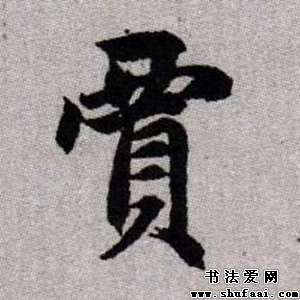 賈
书法爱网
www.shufaai.com